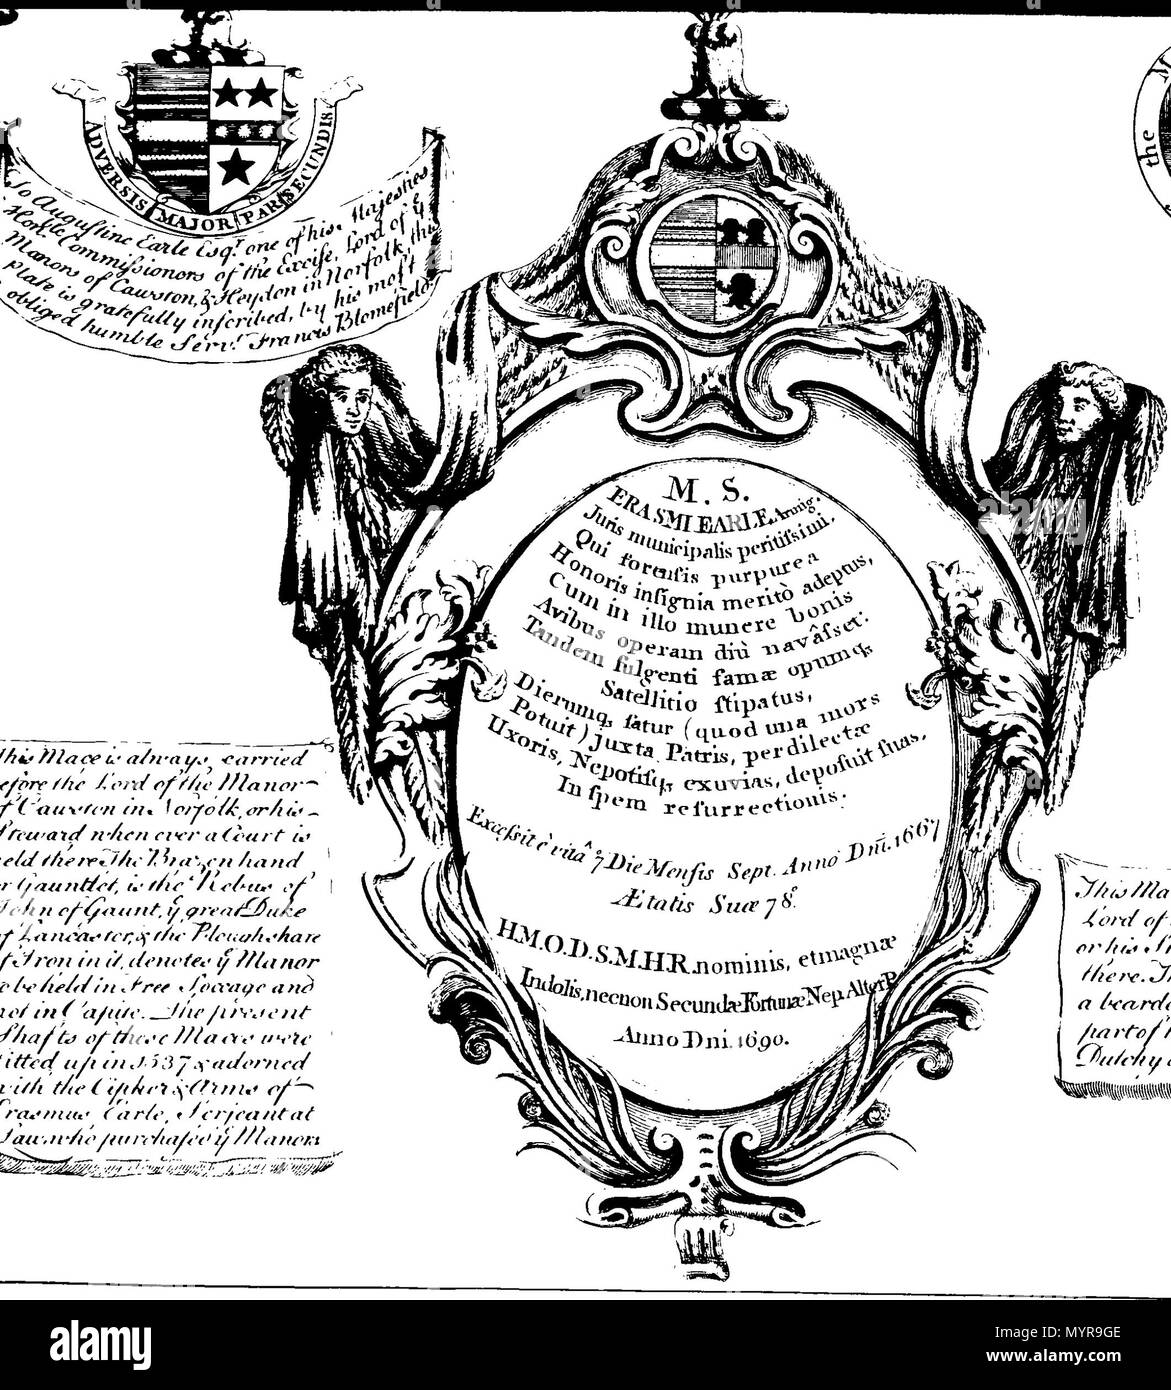 ADVERSIS MAJOR PAR SECUNDIS
To Augustine Earle Esqr. one of his Majesties
Honble Commissionors of the Excise, Lord of ye
Manors of Cawston, & Heydon in Norfolk, this
Plate is gratefully inscribed, by his most
obliged humble Servt. Francis Blomefield
the M
M. S.
ERASMI EARLE Armig.
Juris municipalis peritissimi,
Qui forensis purpurea
Honoris insignia meritò adeptus,
Cum in illo munere bonis
Avibus operam diù navâsset:
Tandem fulgenti famæ opumq
Satellitio stipatus,
Dierumq satur (quod una mors
Potuit) Juxta Patris, perdilectæ
Uxoris, Nepotisq exuvias, deposuit suas,
In spem resurrectionis.
Excessit è vitâ 7o Die Mensis Sept. Anno Dm̄. 1667
Ætatis Suæ 78o.
H.M.O.D.S.M.H.R. nominis, et magnæ
Indolis, necnon Secundæ Fortunæ Nep. Alter P.
Anno Dni. 1690.
this Mace is always, carried
efore the Lord of the Manor
f Cawston in Norfolk, or his
Steward when ever a Court is
held there The Brazen hand
or Gauntlet, is the Rebus of
John of Gaunt, ye great Duke
of Lancaster, & the Ploughshare
of Iron in it, denotes ye Manor
to be held in Free Soccage and
not in Capite. The present
Shafts of these Maces were
fitted up in 1537 & adorned
with the Cipher & Arms of
Erasmus Earle, Serjeant at
Law, who purchased ye Manors
This Ma
Lord of
or his St
there. T
a beard
part of
Dutchy
alamy
alamy
Image ID: MYR9GE
www.alamy.com